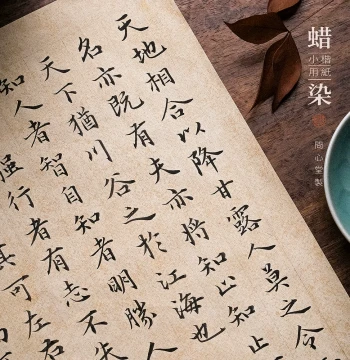 蜡染
小楷
用紙
简心堂製
天地相合以降甘露人莫之
名亦既有夫亦将知止知止
天下猶川谷之於江海也
知人者智自知者明勝人
强行者有志不失
其可左右